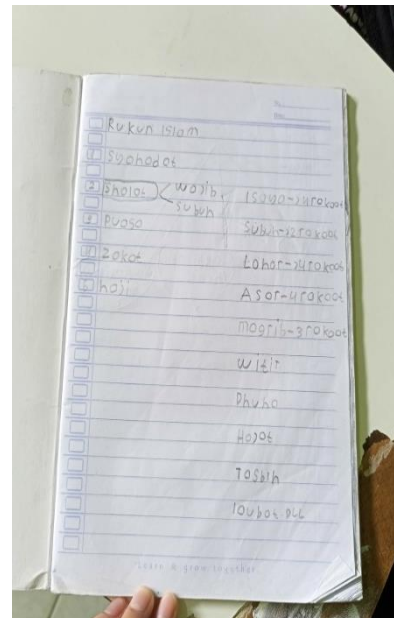 Rukun islam
1 Syahadat
2 Sholat
wajib
subuh
3 Puasa
4 zakat
5 haji
isaya-4rakaat
Subuh-2rakaat
Lohor-4rakaat
Asar-4rakaat
magrib-3rakaat
witir
Dhuha
Hajat
Tasbih
Taubat DLL
Learn & grow together